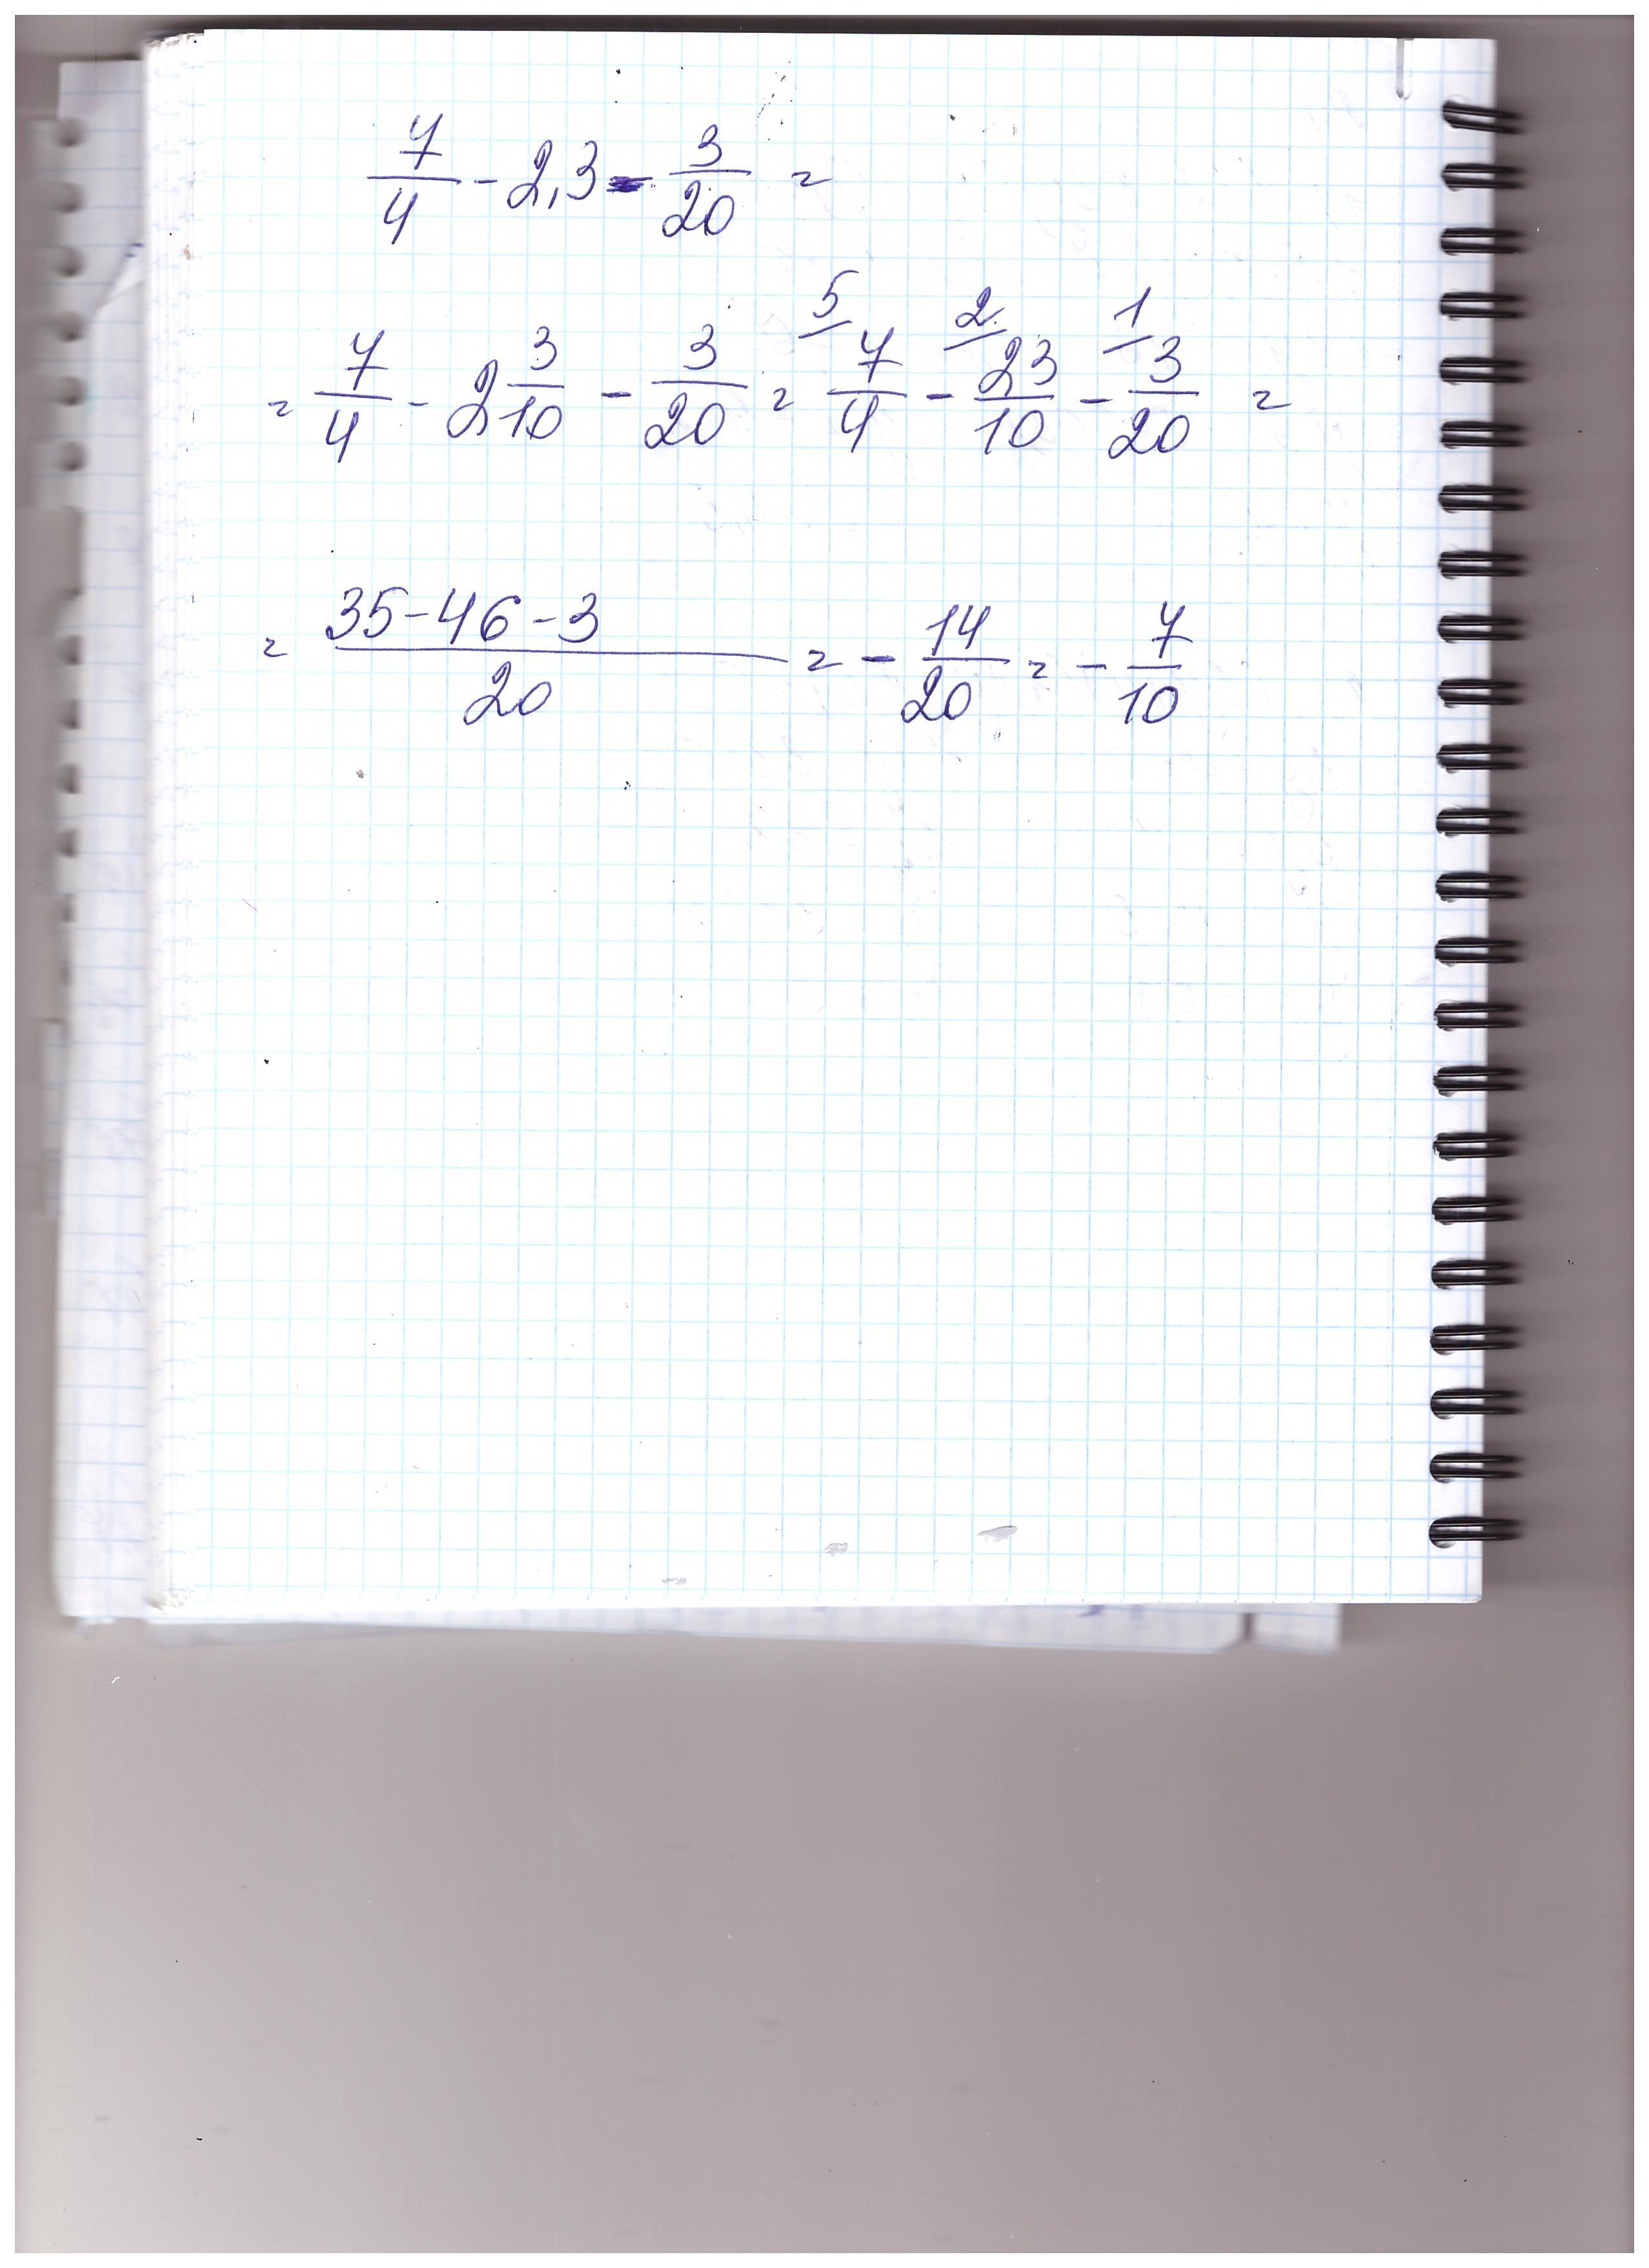 7/4 - 2,3 - 3/20 =
= 7/4 - 2 3/10 - 3/20 = 5/ 7/4 - 2/ 23/10 - 1/ 3/20 =
= (35-46-3)/20 = - 14/20 = - 7/10